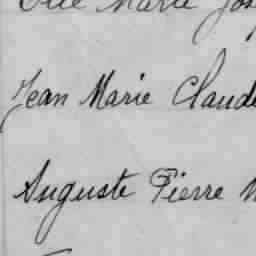 Marie Jos
Jean Marie Claude
Auguste Pierre